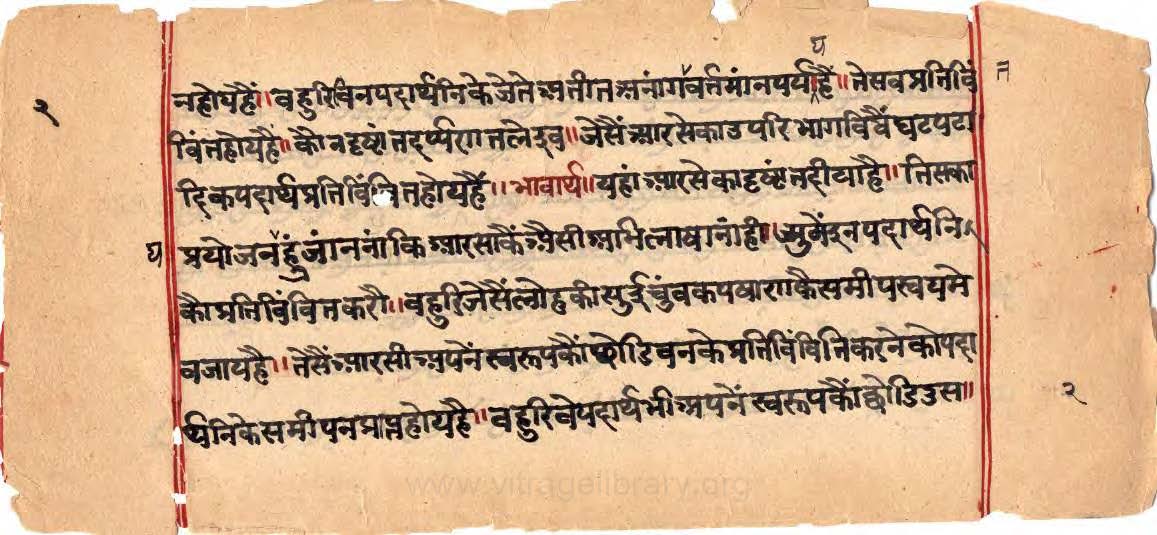 य
नहोयहैं॥ बहुरि बिनपदार्थनिके जेते अतीत अनांग वर्त्तमांन पर्य हैं॥ ते सब प्रतिबिं
त
२
बिंतहोयहैं॥ कौन दृष्टांत दर्प्पणतल इव॥ जैसैं आरसे का उपरि भागविषैं घटपटा
दिक पदार्थ प्रतिबिंबित होयहैं॥ भावार्थ॥ यहां आरसे का दृष्टांत दीया है॥ तिसका
य
प्रयोजन हुं जांननां कि आरसा कैं अैसी अभिलाषा नांही॥ जु मैं इन पदार्थनि
कौ प्रतिबिंबित करौं॥ बहुरि जैसैं लोहकी सुई चुंबक पषाण कै समीप स्वयमे
व जाय है॥ तैसैं आरसी अपनें स्वरूपकौं छोडि बनके प्रतिबिंबिति करनेको पदा
र्थनिके समीप न प्राप्त होय है॥ बहुरि वे पदार्थ भी अपनें स्वरूपकौं छोडि उस॥
२
www.vitragelibrary.org